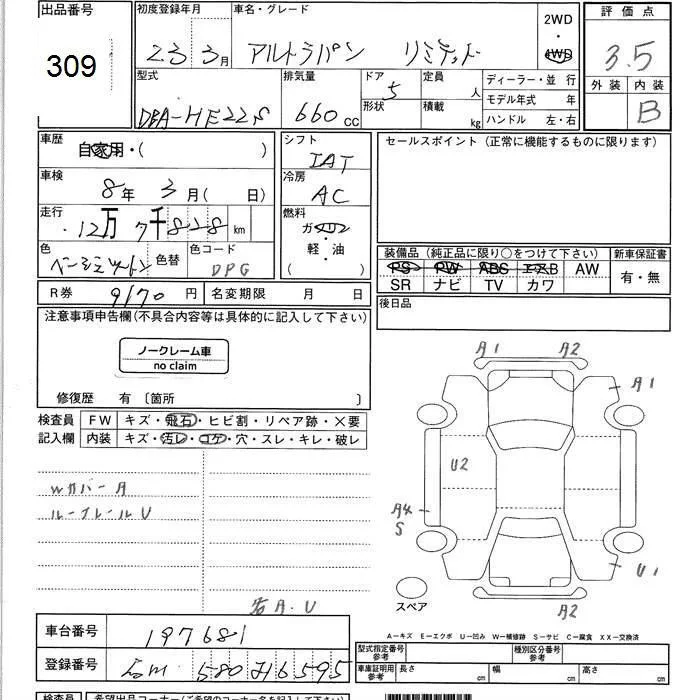 出品番号
309
初度登録年月
23 3月
車名・グレード
アルトラパン リミテッド
2WD
・
4WD
評価点
3.5
外装 内装
B
型式
DBA-HE22S
排気量
660 CC
ドア
5
形状
定員
人
積載
kg
ディーラー・並行
モデル年式 年
ハンドル 左・右
車歴
自家用・( )
車検
8年 3月( 日)
走行
12万7千828 km
色
色替
色コード
DPG
シフト
IAT
冷房
AC
燃料
ガソリン
軽・油
( )
セールスポイント(正常に機能するものに限ります)
装備品(純正品に限り○をつけて下さい)
PS PW ABS エアB AW
SR ナビ TV カワ
新車保証書
有・無
R券 9170 円
名変期限 月 日
後日品
注意事項申告欄(不具合内容等は具体的に記入して下さい)
ノークレーム車
no claim
修復歴 有〔箇所 〕
検査員
記入欄
FW キズ・飛石・ヒビ割・リペア跡・×要
内装 キズ・汚レ・コゲ・穴・スレ・キレ・破レ
Wカバー A
ルーフレール U
若A.U
A1 A2
A1
U2
A4
S
U1
A2
スペア
A-キズ E-エクボ U-凹み W-補修跡 S-サビ C-腐食 XX-交換済
車台番号
197681
登録番号
580 6595
型式指定番号
参考
種別区分番号
参考
車庫証明用
参考
長さ cm
幅 cm
高さ cm
検査員
希望出品コーナー(ご希望のコーナー名を記入して下さい)